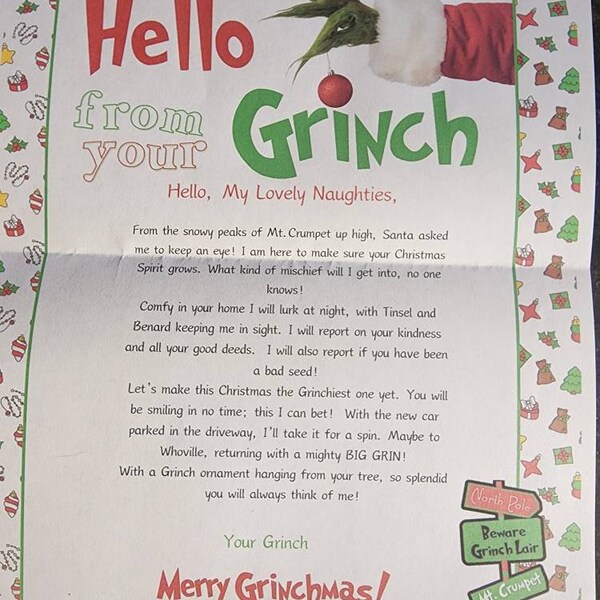 Hello
from
your Grinch
Hello, My Lovely Naughties,
From the snowy peaks of Mt. Crumpet up high, Santa asked
me to keep an eye! I am here to make sure your Christmas
Spirit grows. What kind of mischief will I get into, no one
knows!
Comfy in your home I will lurk at night, with Tinsel and
Benard keeping me in sight. I will report on your kindness
and all your good deeds. I will also report if you have been
a bad seed!
Let's make this Christmas the Grinchiest one yet. You will
be smiling in no time; this I can bet! With the new car
parked in the driveway, I'll take it for a spin. Maybe to
Whoville, returning with a mighty BIG GRIN!
With a Grinch ornament hanging from your tree, so splendid
you will always think of me!
Your Grinch
Merry Grinchmas!
North Pole
Beware
Grinch Lair
Mt. Crumpet